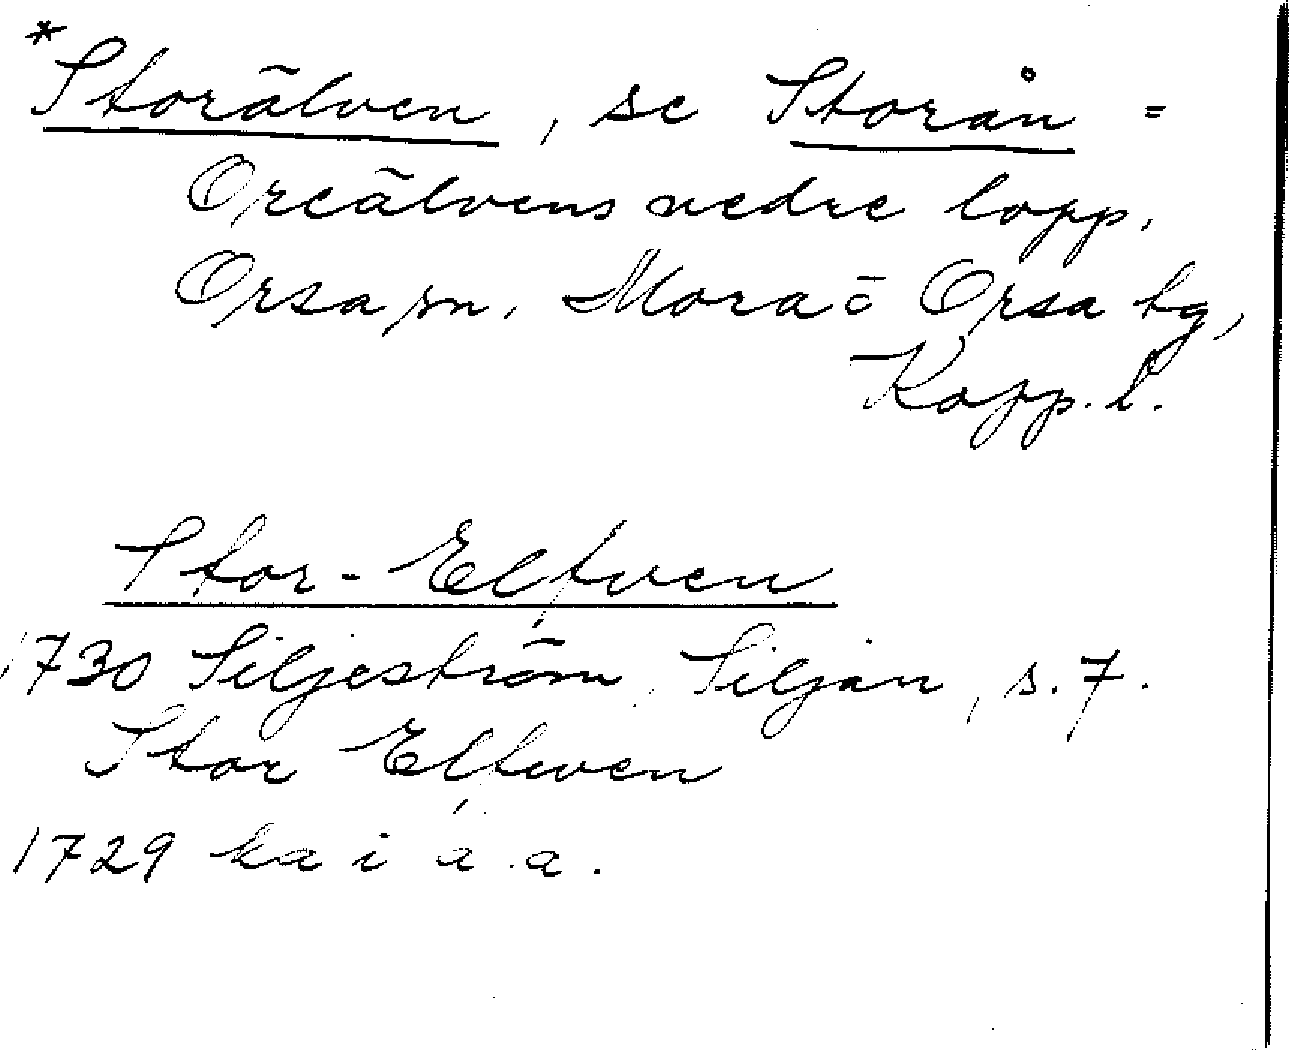 *Storälven, se Storån =
Oreälvens nedre lopp.
Orsa sn. Mora o Orsa tg,
Kopp. l.
Stor-Elfven
1730 Siljeström, Siljan, s. 7.
Stor Elfwen
1729 ka i a. a.